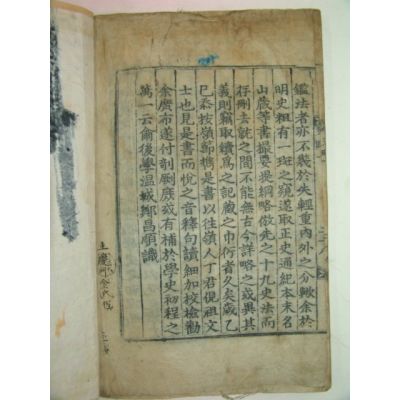 鑑法者亦不裝於失輕重內外之分歟余於
明史粗有一斑之窺遂取正史通紀本末名
山藏等書撮要提綱略倣先之十九史法而
存刪去就之間不能無古今詳略之或異其
義則竊取續焉之記藏之巾衍者久矣歲乙
巳忝按嶺鄭携是書以往嶺人丁君俔祖文
士也見是書而悅之音釋句讀細加校檢勸
余廣布遂付剞劂庶或有補於學史初程之
萬一云爾後學溫城鄭昌順識